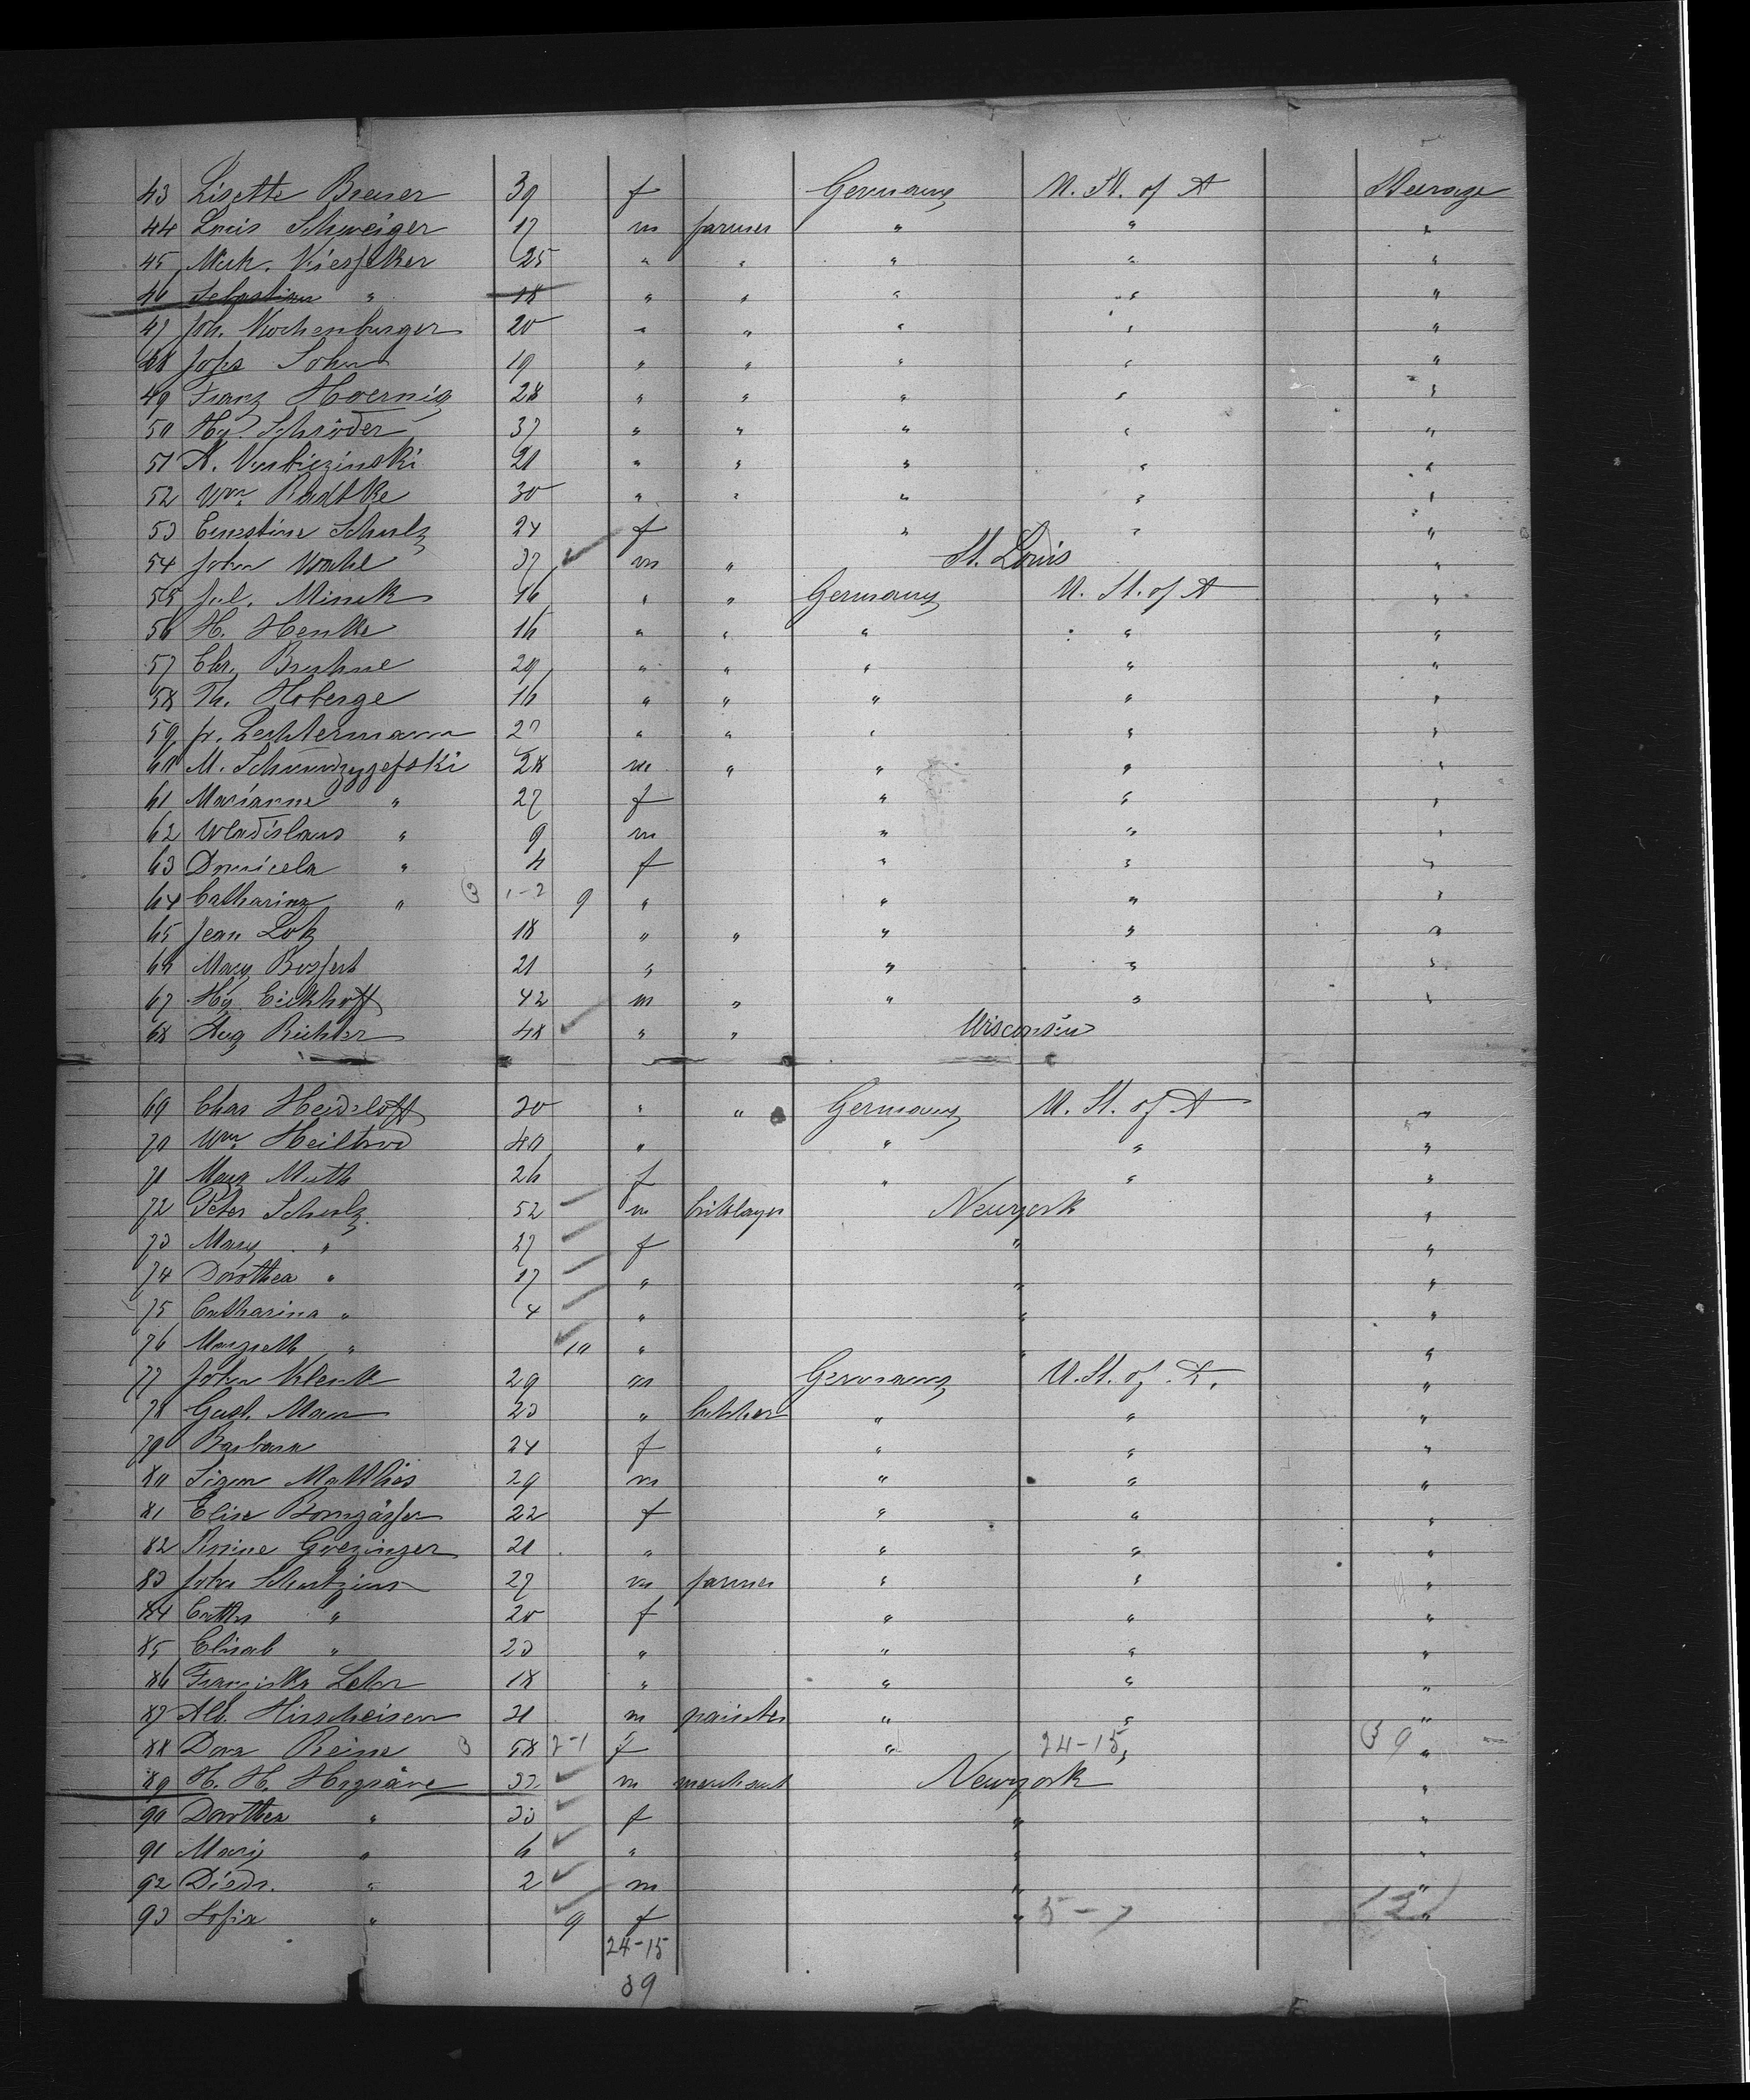 43 Lisette Breuer 39 f Germany U. St. of A Steerage
44 Louis Schweiger 17 m farmer " " "
45 Mich. Kiesselker 25 " " " " "
46 Sebastian " 18 " " " " "
47 Joh. Wochenburger 20 " " " " "
48 Johs Sohn 19 " " " " "
49 Franz Hoernig 28 " " " " "
50 Hy. Schröder 37 " " " " "
51 A. 21 " " " " "
52 Wm. Radtke 30 " " " " "
53 Ernestine Schulz 24 f " " "
54 John 37 m " St. Louis "
55 Jul. Minck 16 " " Germany U. St. of A "
56 H. Henke 16 " " " " "
57 Chr. Bruhne 29 " " " " "
58 Th. Hoberge 16 " " " " "
59 Fr. Lechtermann 27 " " " " "
60 M. 28 m " " " "
61 Marianne " 27 f " " "
62 Wladislaus " 9 m " " "
63 " 4 f " " "
64 Catharina " 3 1-2 9 " " " "
65 Jean Lotz 18 " " " " "
66 Mary Bossert 21 " " " "
67 Hy. Eickhoff 42 m " " " "
68 Aug Richter 48 " " Wisconsin
69 Chas Heideloff 30 " " Germany U. St. of A "
70 Wm. Heilbrod 40 " " " "
71 Mary Muth 26 f " " "
72 Peter Schulz 52 m briklayer Newyork "
73 Mary " 27 f " "
74 Dorothea " 17 " " "
75 Catharina " 4 " " "
76 Margreth " 10 " " "
77 John Klenk 29 m Germany U. St. of A. "
78 Gust. Mann 23 " butcher " " "
79 Barbara 24 f " " "
80 Sigm Matthies 29 m " " "
81 Elise Bomgässer 22 f " " "
82 Rosine Goezinger 21 " " " "
83 John 27 m farmer " " "
84 Cath " 20 f " " "
85 Elisab " 23 " " " "
86 Franziska Lehr 18 " " " "
87 Alb. Hirscheisen 21 m painter " " "
88 Dora Reine 3 58 2-1 f " 24-15 " 39 "
89 H. H. 32 m merchant Newyork "
90 Dorothea " 33 f " "
91 Mary " 6 " " "
92 Diedr. " 2 m " "
93 Sofia " 9 f " 5-7 12 "
24-15
39